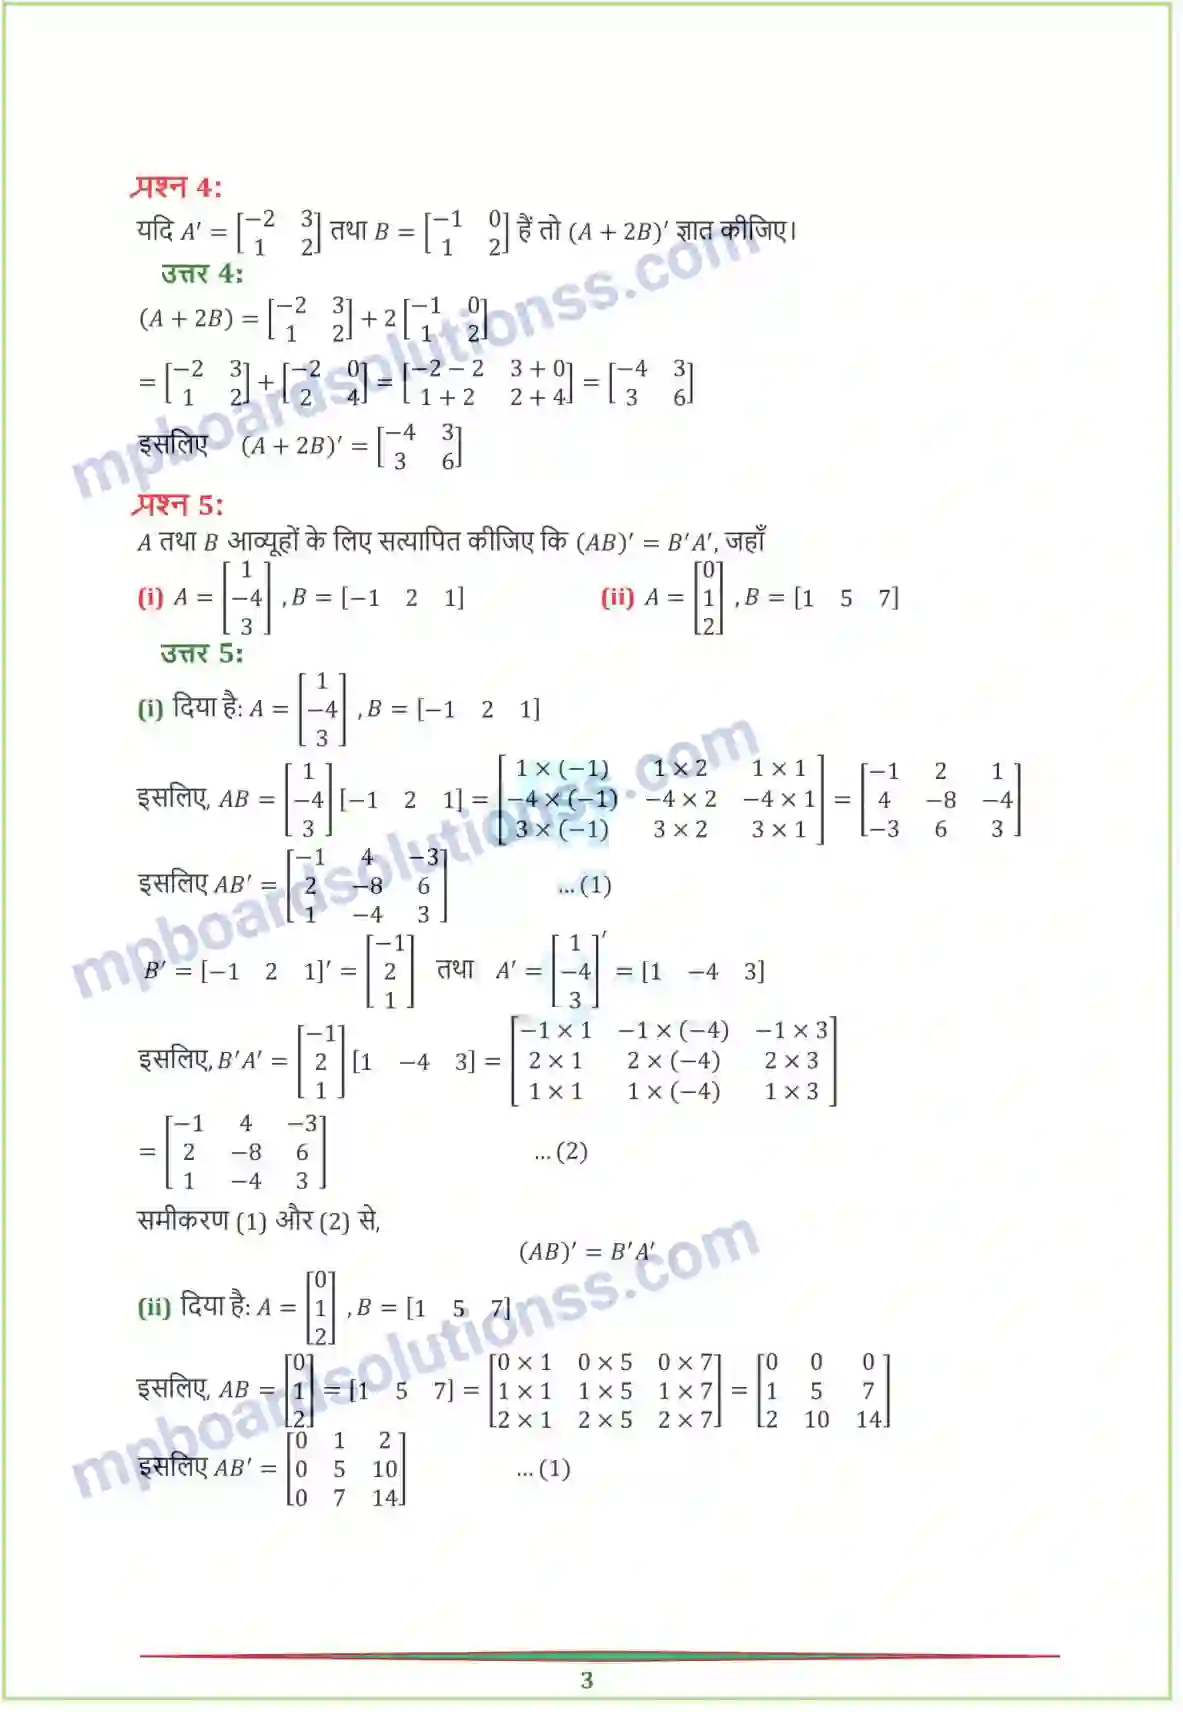 प्रश्न 4:
यदि A′ = [−2 3; 1 2] तथा B = [−1 0; 1 2] हैं तो (A + 2B)′ ज्ञात कीजिए।
उत्तर 4:
(A + 2B) = [−2 3; 1 2] + 2 [−1 0; 1 2]
= [−2 3; 1 2] + [−2 0; 2 4] = [−2 − 2 3 + 0; 1 + 2 2 + 4] = [−4 3; 3 6]
इसलिए (A + 2B)′ = [−4 3; 3 6]
प्रश्न 5:
A तथा B आव्यूहों के लिए सत्यापित कीजिए कि (AB)′ = B′A′, जहाँ
(i) A = [1; −4; 3] , B = [−1 2 1] (ii) A = [0; 1; 2] , B = [1 5 7]
उत्तर 5:
(i) दिया है: A = [1; −4; 3] , B = [−1 2 1]
इसलिए, AB = [1; −4; 3] [−1 2 1] = [1 × (−1) 1 × 2 1 × 1; −4 × (−1) −4 × 2 −4 × 1; 3 × (−1) 3 × 2 3 × 1] = [−1 2 1; 4 −8 −4; −3 6 3]
इसलिए AB′ = [−1 4 −3; 2 −8 6; 1 −4 3] … (1)
B′ = [−1 2 1]′ = [−1; 2; 1] तथा A′ = [1; −4; 3]′ = [1 −4 3]
इसलिए, B′A′ = [−1; 2; 1] [1 −4 3] = [−1 × 1 −1 × (−4) −1 × 3; 2 × 1 2 × (−4) 2 × 3; 1 × 1 1 × (−4) 1 × 3]
= [−1 4 −3; 2 −8 6; 1 −4 3] … (2)
समीकरण (1) और (2) से,
(AB)′ = B′A′
(ii) दिया है: A = [0; 1; 2] , B = [1 5 7]
इसलिए, AB = [0; 1; 2] = [1 5 7] = [0 × 1 0 × 5 0 × 7; 1 × 1 1 × 5 1 × 7; 2 × 1 2 × 5 2 × 7] = [0 0 0; 1 5 7; 2 10 14]
इसलिए AB′ = [0 1 2; 0 5 10; 0 7 14] … (1)
3
mpboardsolutionss.com
mpboardsolutionss.com
mpboardsolutionss.com